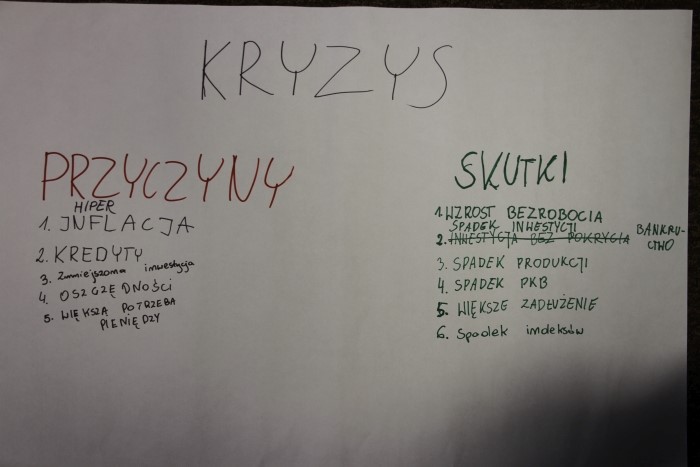 KRYZYS
PRZYCZYNY
HIPER
1. INFLACJA
2. KREDYTY
3. Zmniejszona inwestycja
4. OSZCZĘDNOŚCI
5. WIĘKSZA POTRZEBA
PIENIĘDZY
SKUTKI
1. WZROST BEZROBOCIA
SPADEK INWESTYCJI
2. INWESTYCJA BEZ POKRYCIA BANKRU-
CTWO
3. SPADEK PRODUKCJI
4. SPADEK PKB
5. WIĘKSZE ZADŁUŻENIE
6. Spadek indeksów